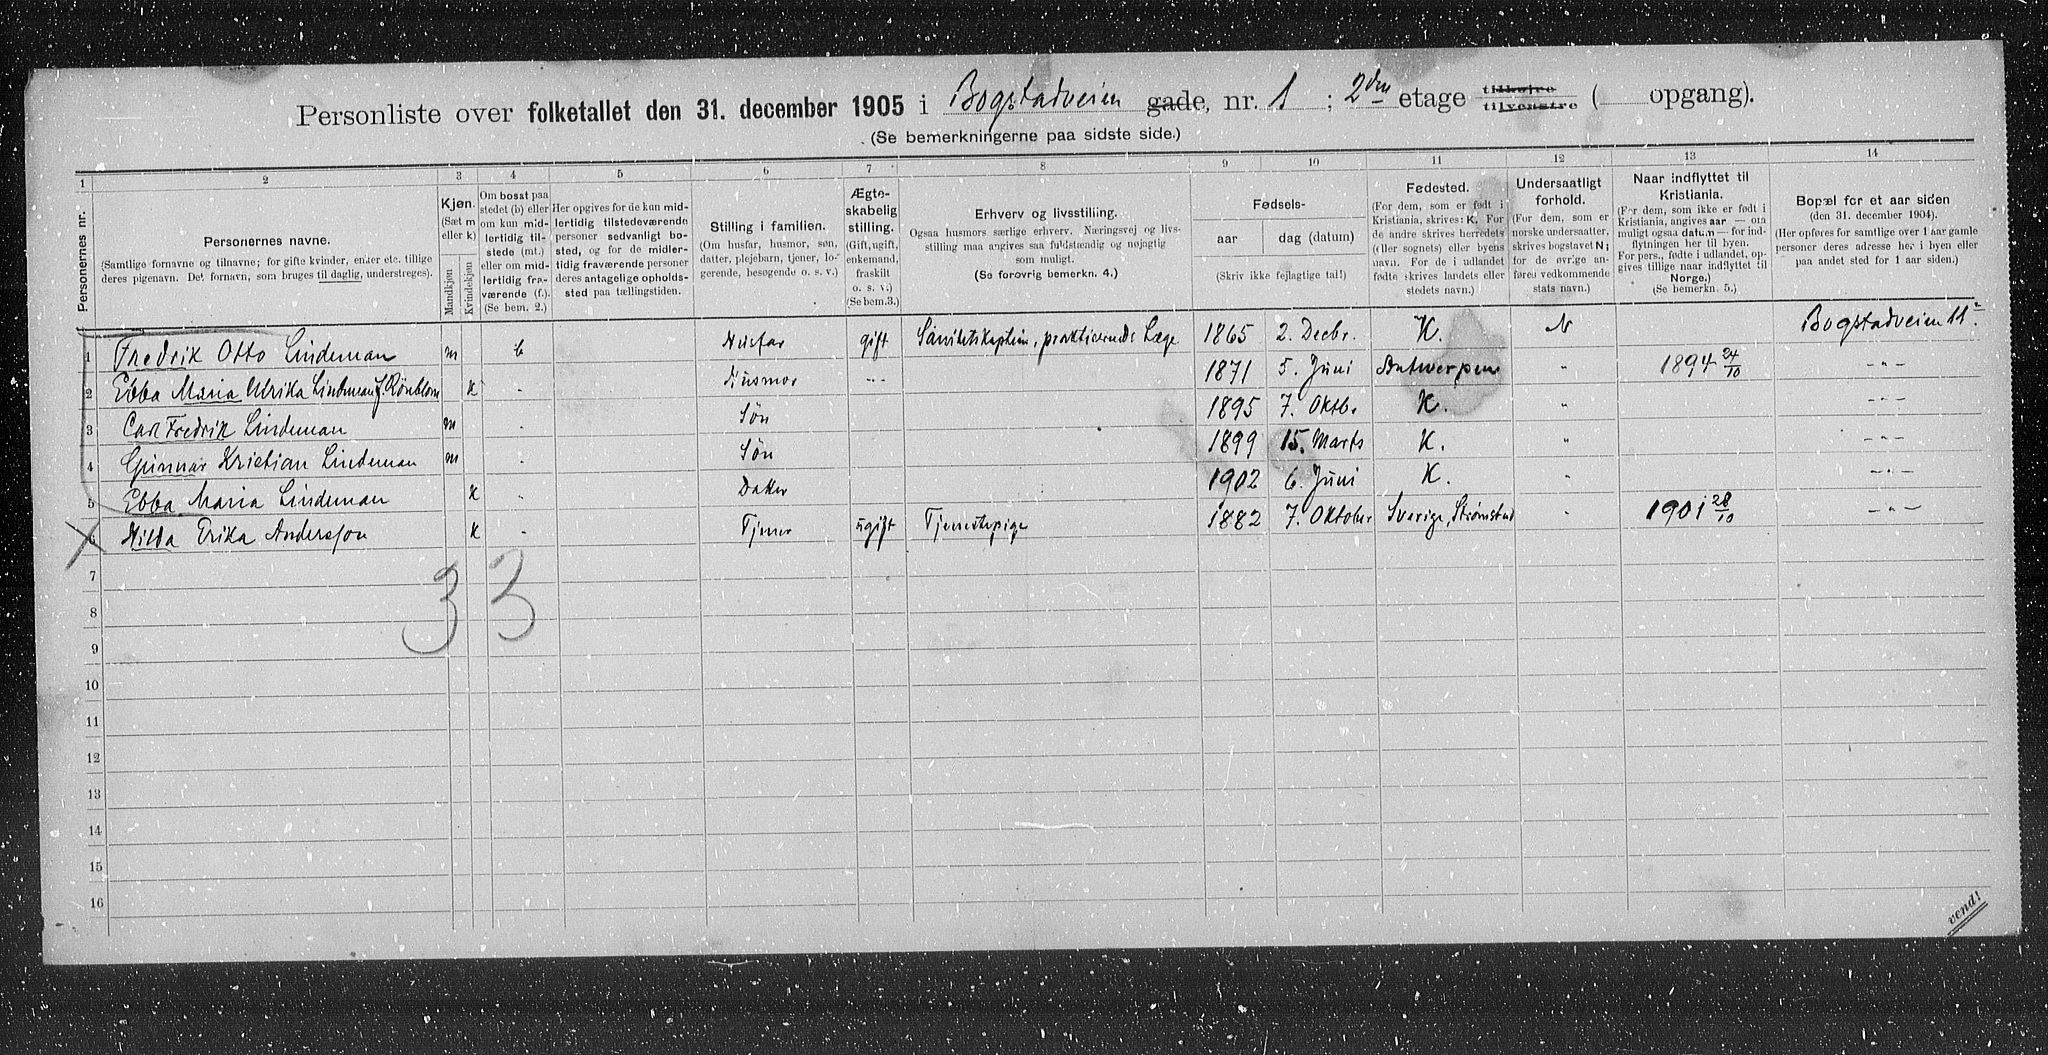 Personliste over folketallet den 31. december 1905 i Bogstadveien gade, nr. 1 ; 2den etage tilhøire tilvenstre ( opgang).
(Se bemerkningerne paa sidste side.)
1 2 3 4 5 6 7 8 9 10 11 12 13 14
Personernes nr.
Personernes navne.
(Samtlige fornavne og tilnavne; for gifte kvinder, enker etc. tillige deres pigenavn. Det fornavn, som bruges til daglig, understreges).
Kjøn.
(Sæt m eller k)
Mandkjøn
Kvindekjøn
Om bosat paa stedet (b) eller om kun midlertidig tilstede (mt.) eller om midlertidig fraværende (f.). (Se bem. 2.)
Her opgives for de kun midlertidig tilstedeværende personer sedvanligt bosted, og for de midlertidig fraværende personer deres antagelige opholdssted paa tællingstiden.
Stilling i familien.
(Om husfar, husmor, søn, datter, plejebarn, tjener, logerende, besøgende o. s. v.)
Ægteskabelig stilling.
(Gift, ugift, enkemand, fraskilt o. s. v.)
(Se bem. 3.)
Erhverv og livsstilling.
Ogsaa husmors særlige erhverv. Næringsvej og livsstilling maa angives saa fuldstændig og nøjagtig som muligt.
(Se forøvrig bemerkn. 4.)
Fødsels-
aar
dag (datum)
(Skriv ikke fejlagtige tal!)
Fødested.
(For dem, som er født i Kristiania, skrives: K. For de andre skrives herredets (eller sognets) eller byens navn. For de i udlandet fødte skrives landets eller stedets navn.)
Undersaatligt forhold.
(For dem, som er norske undersaatter, skrives bogstavet N; for de øvrige anføres vedkommende stats navn.)
Naar indflyttet til Kristiania.
(For dem, som ikke er født i Kristiania, angives aar — om muligt ogsaa datum — for indflytningen her til byen. For pers., fødte i udlandet, opgives tillige naar indflyttet til Norge.)
(Se bemerkn. 5.)
Bopæl for et aar siden
(den 31. december 1904).
(Her opføres for samtlige over 1 aar gamle personer deres adresse her i byen eller paa andet sted for 1 aar siden.)
1 Fredrik Otto Lindeman m b Husfar gift Sanitetskaptein, praktiserende Læge 1865 2. Decbr. K. N Bogstadveien 11
2 Ebba Maria Ulrika Lindeman f. Rönblom K - Husmor -"- 1871 5. Juni Antwerpen " 1894 24/10 -"-
3 Carl Fredrik Lindeman m - Søn 1895 7. Oktb. K. " -"-
4 Gunnar Kristian Lindeman m - Søn 1899 15. Marts K. " -"-
5 Ebba Maria Lindeman K - Datter 1902 6. Juni K. " -"-
6 Hilda Erika Andersson K - Tjener ugift Tjenestepige 1882 7. Oktober Sverige, Strömstad " 1901 28/10 -"-
7
3 3
8
9
10
11
12
13
14
15
16
vend!